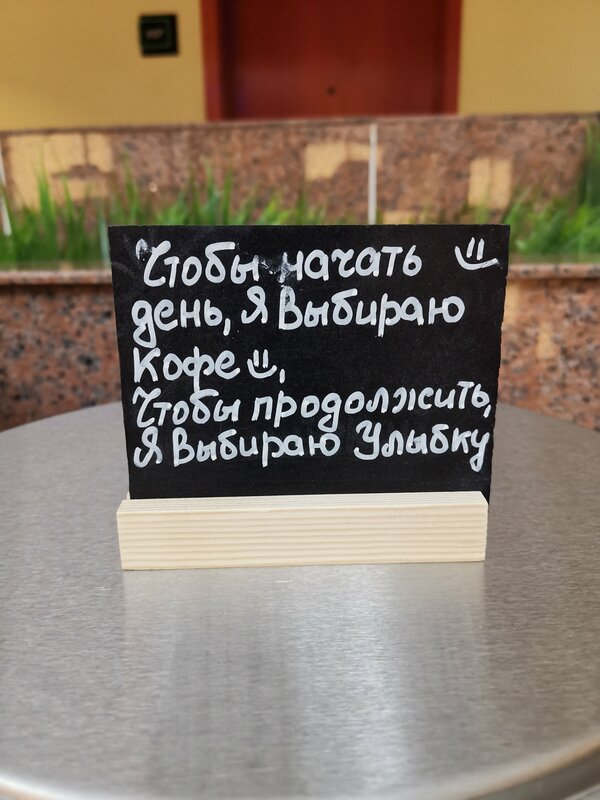 Чтобы начать
день, Я Выбираю
Кофе
Чтобы продолжить,
Я Выбираю Улыбку